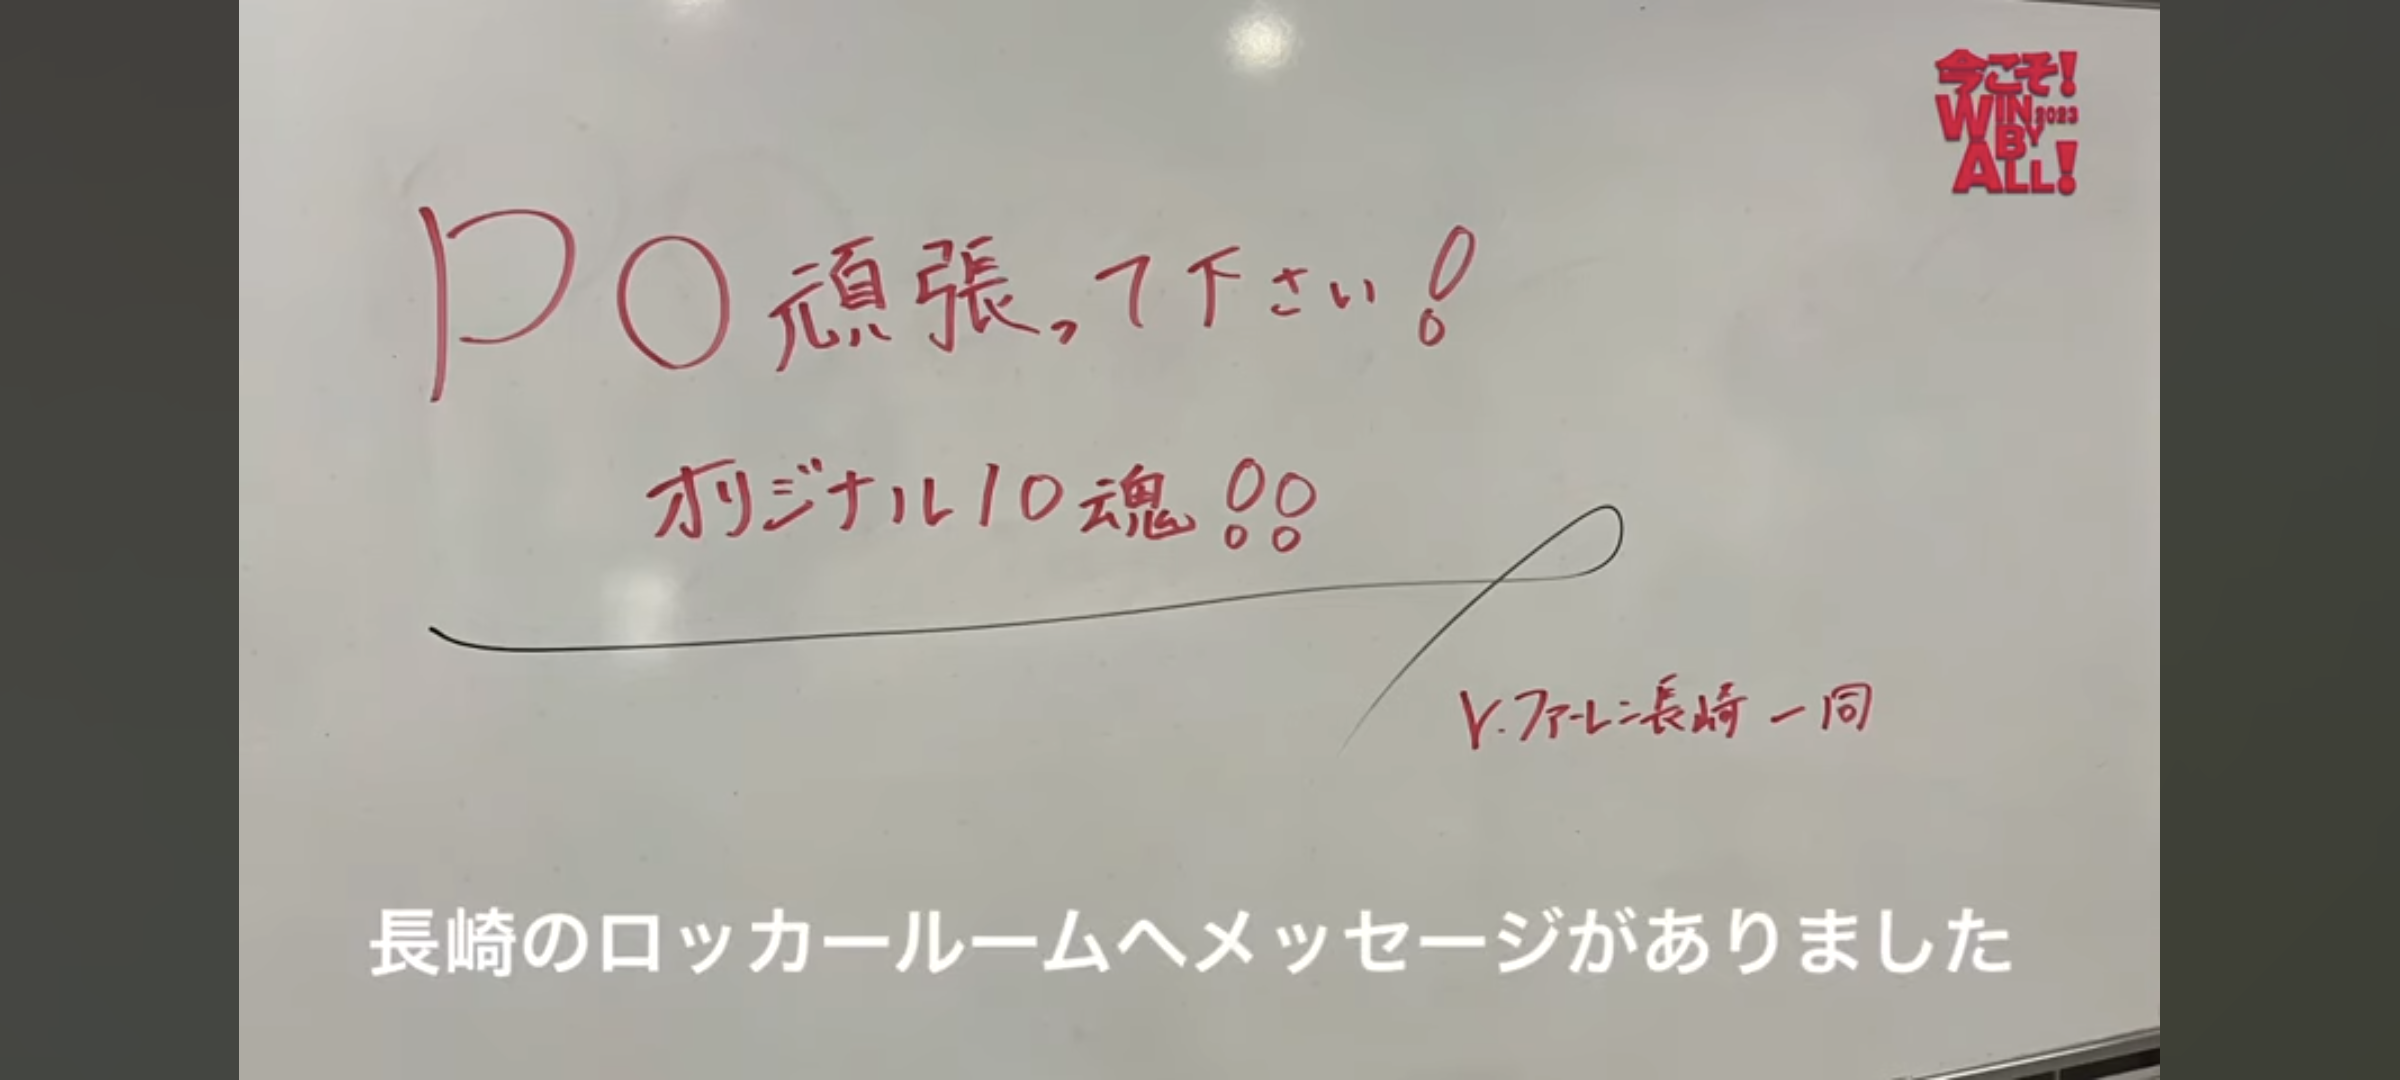 今こそ!
WIN 2023
BY
ALL!
PO頑張って下さい!
オリジナル10魂!!
V・ファーレン長崎一同
長崎のロッカールームへメッセージがありました